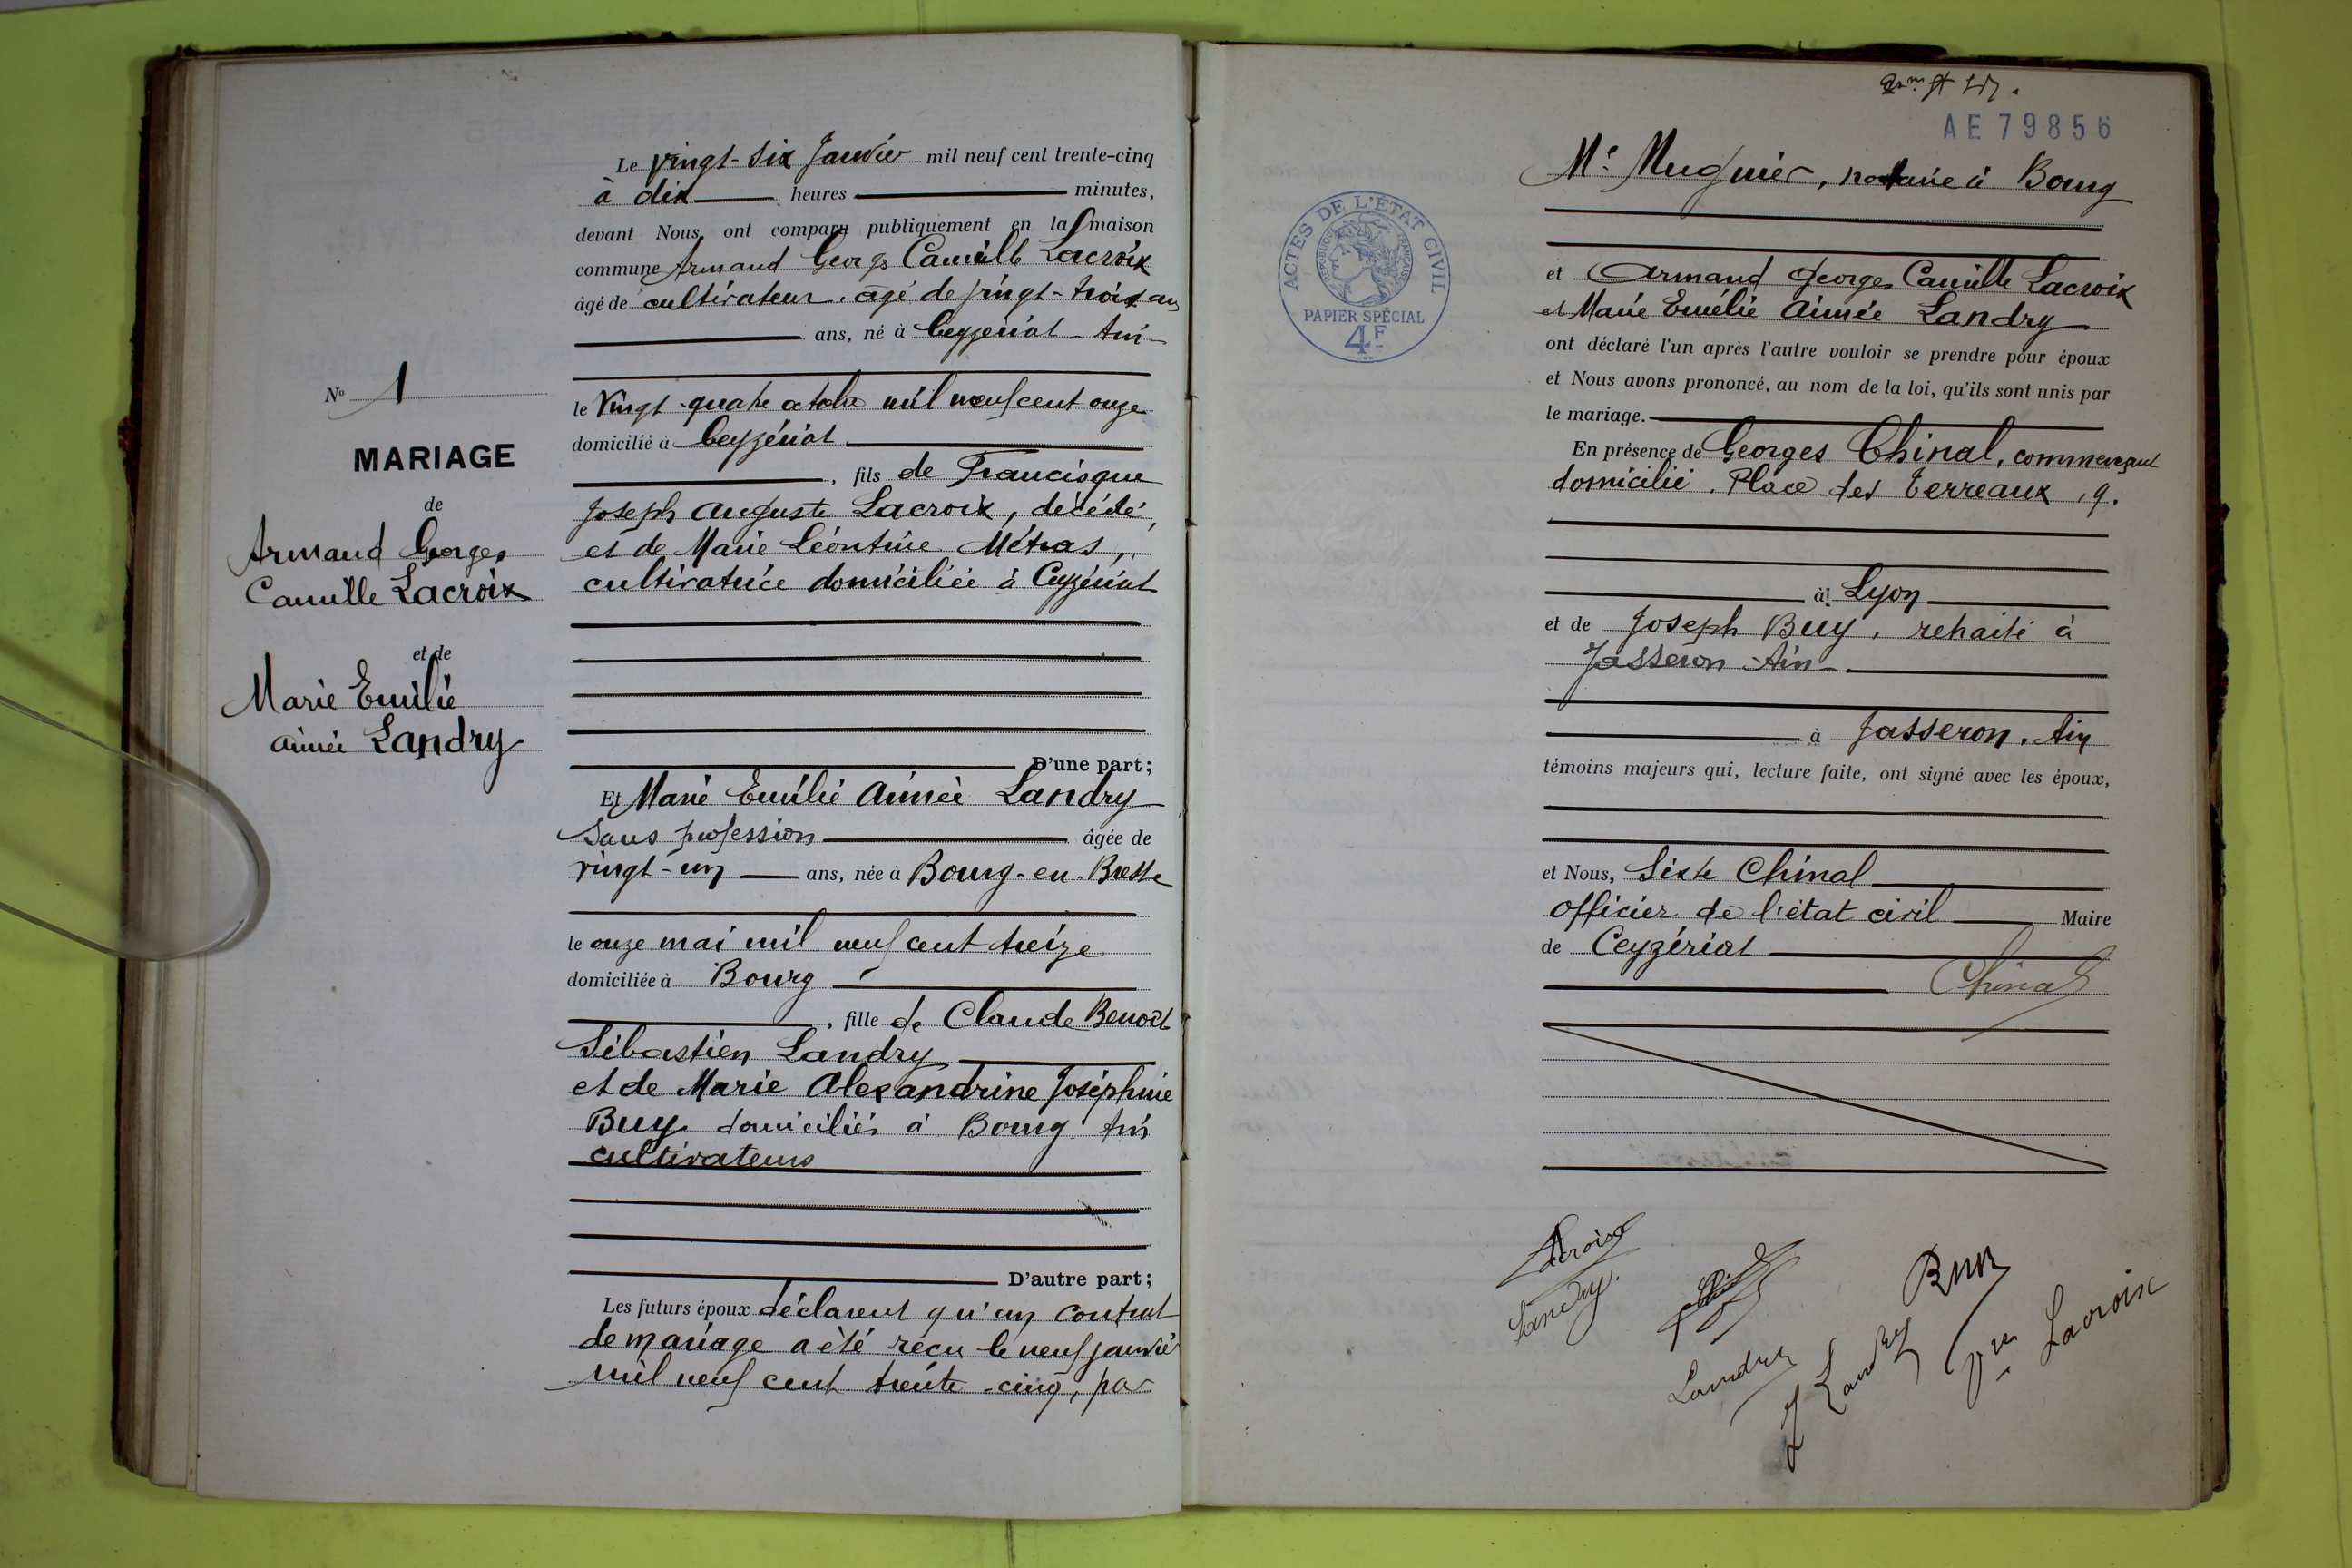 Le vingt-six Janvier mil neuf cent trente-cinq
à dix heures minutes,
devant Nous, ont comparu publiquement en la maison
commune Armand Georges Camille Lacroix
âgé de cultivateur, âgé de vingt-trois ans
ans, né à Ceyzériat - Ain
le Vingt quatre octobre mil neuf cent onze
domicilié à Ceyzériat
, fils de Francisque
Joseph Auguste Lacroix, décédé,
et de Marie Léontine Métras,
cultivatrice domiciliée à Ceyzériat
D'une part;
Et Marie Emilie Aimée Landry
Sans profession âgée de
vingt-un ans, née à Bourg-en-Bresse
le onze mai mil neuf cent treize
domiciliée à Bourg
, fille de Claude Benoît
Sébastien Landry
et de Marie Alexandrine Joséphine
Buy domiciliés à Bourg Ain
cultivateurs
D'autre part;
Les futurs époux déclarent qu'un contrat
de mariage a été reçu le neuf janvier
mil neuf cent trente-cinq, par
No 1
MARIAGE
de
Armand Georges
Camille Lacroix
et de
Marie Emilie
Aimée Landry
AE 79856
Me Mugnier, notaire à Bourg
ACTES DE L'ÉTAT CIVIL
RÉPUBLIQUE FRANÇAISE
PAPIER SPÉCIAL
4F
et Armand Georges Camille Lacroix
et Marie Emilie Aimée Landry
ont déclaré l'un après l'autre vouloir se prendre pour époux
et Nous avons prononcé, au nom de la loi, qu'ils sont unis par
le mariage.
En présence de Georges Chinal, commerçant
domicilié, Place des Terreaux, 9.
à Lyon
et de Joseph Buy, retraité à
Jasseron - Ain -
à Jasseron, Ain
témoins majeurs qui, lecture faite, ont signé avec les époux,
et Nous, Sixte Chinal
Officier de l'état civil Maire
de Ceyzériat
Chinal
Lacroix
Landry
Buy
Landry
J Landry
Vve Lacroix